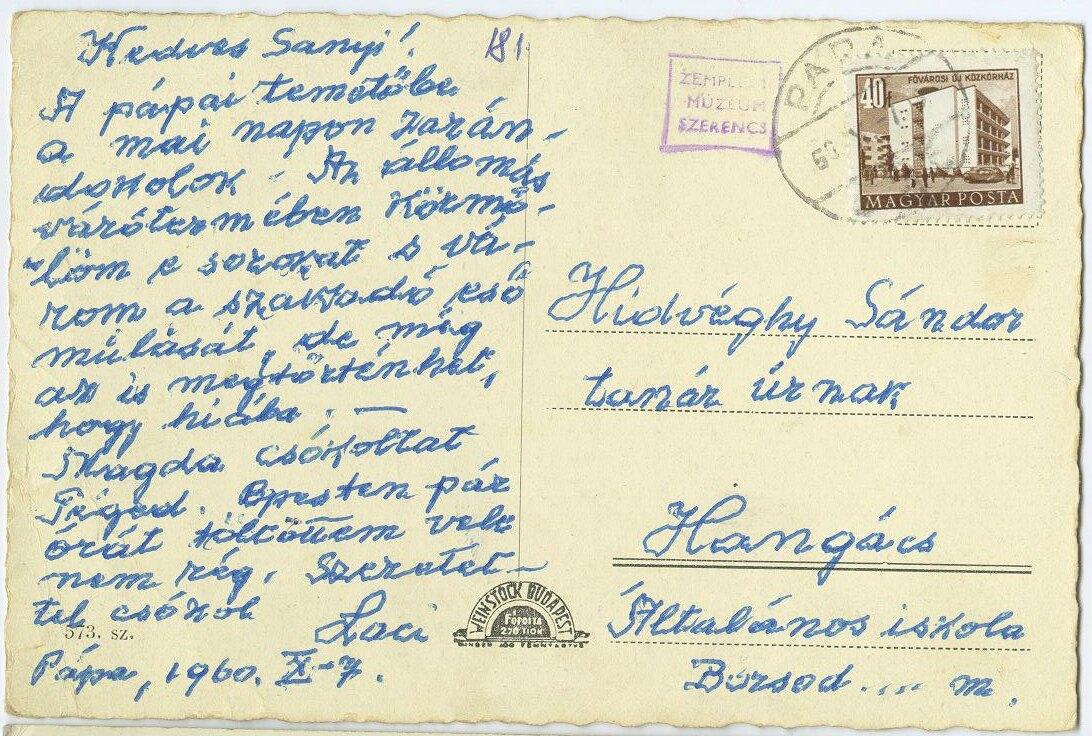 Kedves Sanyi!
A pápai temetőbe
a mai napon zarán-
dokolok. Az állomás
várótermében körmö-
löm e sorokat s vá-
rom a szakadó eső
múlását, de még
az is megtörténhet,
hogy hiába. —
Magda csókoltat
Téged. Bpesten pár
órát töltöttem vele
nem rég. Szeretet-
tel csókol
Laci
573. sz.
Pápa, 1960. X-7.
181.
ZEMPLÉNI
MÚZEUM
SZERENCS
PÁPA
60
40
FŐVÁROSI ÚJ KÖZKÓRHÁZ
MAGYAR POSTA
Hídvéghy Sándor
tanár úrnak
Hangács
Általános iskola
Borsod .... m.
WEINSTOCK BUDAPEST